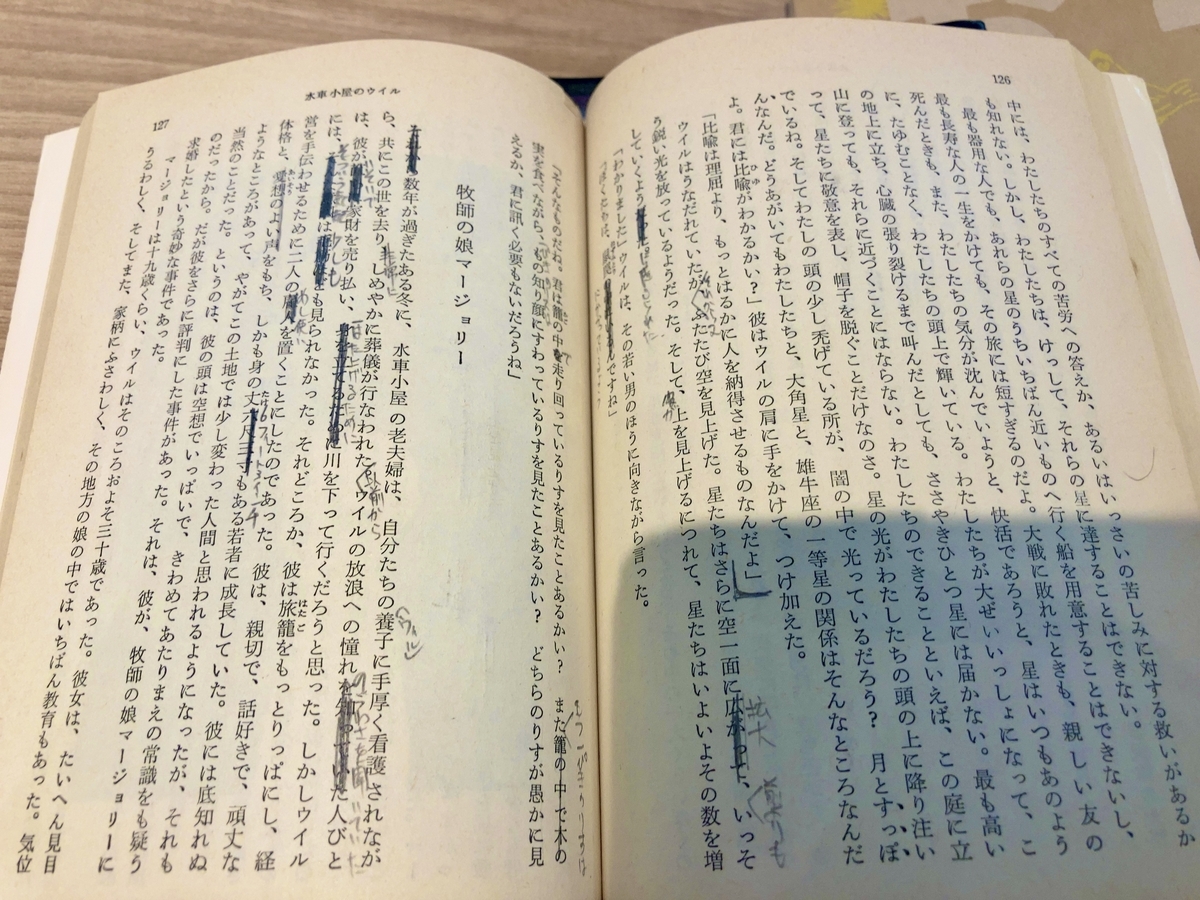 126
中には、わたしたちのすべての苦労への答えか、あるいはいっさいの苦しみに対する救いがあるか
も知れない。しかし、わたしたちは、けっして、それらの星に達することはできない。
最も器用な人でも、あれらの星のうちいちばん近いものへ行く船を用意することはできないし、
最も長寿な人の一生をかけても、その旅には短すぎるのだよ。大戦に敗れたときも、親しい友の
死んだときも、また、わたしたちの気分が沈んでいようと、快活であろうと、星はいつもあのよう
に、たゆむことなく、わたしたちの頭上で輝いている。わたしたちが大ぜいいっしょになって、こ
の地上に立ち、心臓の張り裂けるまで叫んだとしても、ささやきひとつ星には届かない。最も高い
山に登っても、それらに近づくことにはならない。わたしたちのできることといえば、この庭に立
って、星たちに敬意を表し、帽子を脱ぐことだけなのさ。星の光がわたしたちの頭の上に降り注い
でいるね。そしてわたしの頭の少し禿げている所が、闇の中で光っているだろう？　月とすっぽ
んなんだ。どうあがいてもわたしたちと、大角星と、雄牛座の一等星の関係はそんなところなんだ
よ。君には比喩がわかるかい？」彼はウイルの肩に手をかけて、つけ加えた。
「比喩は理屈より、もっとはるかに人を納得させるものなんだよ」
ウイルはうなだれていたが、ふたたび空を見上げた。星たちはさらに空一面に広がって、いっそ
う鋭い光を放っているようだった。そして、上を見上げるにつれて、星たちはいよいよその数を増
していくよう
「わかりました」ウイルは、その若い男のほうに向きながら言った。
「そんなものだね。君は籠の中を走り回っているりすを見たことあるかい？　また籠の中で木の
実を食べながら、もの知り顔にすわっているりすを見たことあるかい？　どちらのりすが愚かに見
えるか、君に訊く必要もないだろうね」
水車小屋のウイル
127
牧師の娘マージョリー
数年が過ぎたある冬に、水車小屋の老夫婦は、自分たちの養子に手厚く看護されなが
ら、共にこの世を去り、しめやかに葬儀が行なわれた。ウイルの放浪への憧れを知っていた人びと
は、彼が家財を売り払い、身を立てるために川を下って行くだろうと思った。しかしウイル
には、も見られなかった。それどころか、彼は旅籠をもっとりっぱにし、経
営を手伝わせるために二人の人を置くことにしたのであった。彼は、親切で、話好きで、頑丈な
体格と、愛想のよい声をもち、しかも身の丈六尺三寸もある若者に成長していた。彼には底知れぬ
ようなところがあって、やがてこの土地では少し変わった人間と思われるようになったが、それも
当然のことだった。というのは、彼の頭は空想でいっぱいで、きわめてあたりまえの常識をも疑う
のだったから。だが彼をさらに評判にした事件があった。それは、彼が、牧師の娘マージョリーに
求婚したという奇妙な事件であった。
マージョリーは十九歳くらい、ウイルはそのころおよそ三十歳であった。彼女は、たいへん見目
うるわしく、そしてまた、家柄にふさわしく、その地方の娘の中ではいちばん教育もあった。気位